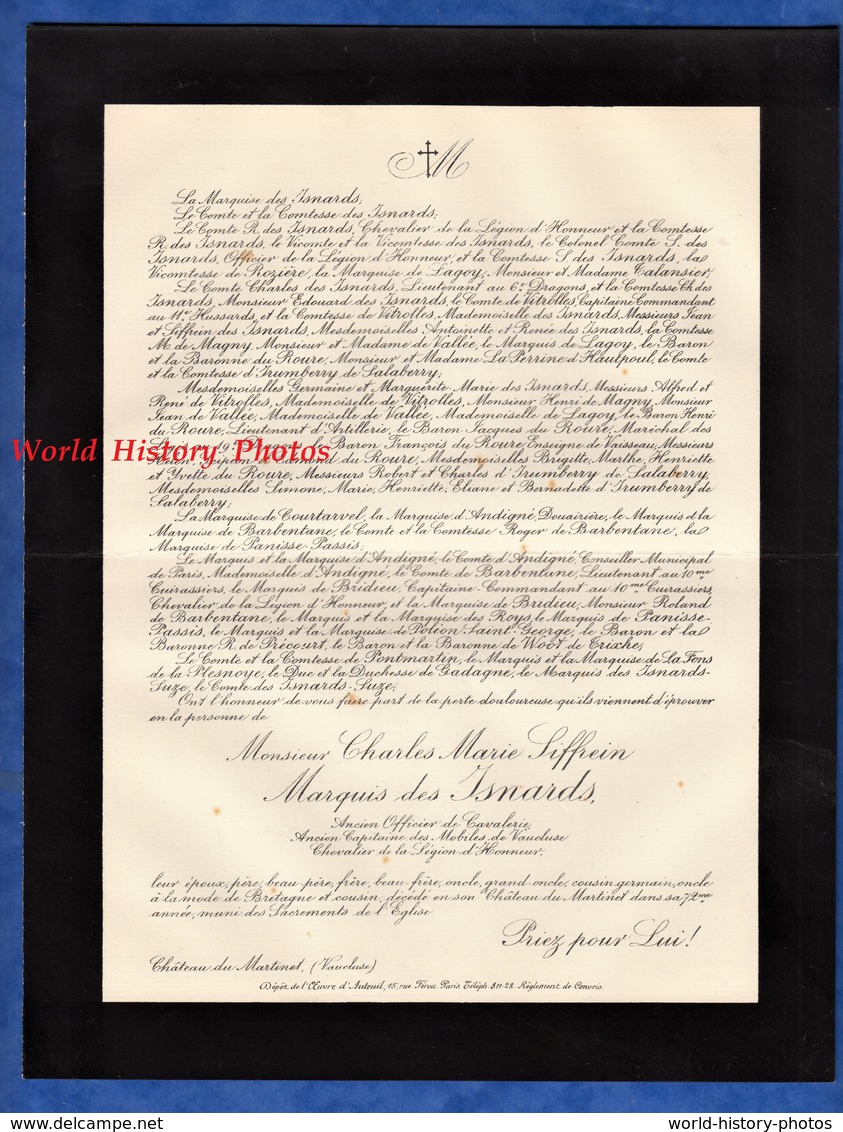 M
La Marquise des Isnards;
Le Comte et la Comtesse des Isnards;
Le Comte R. des Isnards, Chevalier de la Légion d'Honneur et la Comtesse
R. des Isnards, le Vicomte et la Vicomtesse des Isnards, le Colonel Comte S. des
Isnards, Officier de la Légion d'Honneur, et la Comtesse S. des Isnards, la
Vicomtesse de Rozière, la Marquise de Lagoy, Monsieur et Madame Talansier;
Le Comte Charles des Isnards, Lieutenant au 6e Dragons, et la Comtesse Ch. des
Isnards, Monsieur Edouard des Isnards, le Comte de Vitrolles, Capitaine Commandant
au 11me Hussards, et la Comtesse de Vitrolles, Mademoiselle des Isnards, Messieurs Jean
et Siffrein des Isnards, Mesdemoiselles Antoinette et Renée des Isnards, la Comtesse
M. de Magny, Monsieur et Madame de Vallée, le Marquis de Lagoy, le Baron
et la Baronne du Roure, Monsieur et Madame La Perrine d'Hautpoul, le Comte
et la Comtesse d'Irumberry de Salaberry;
Mesdemoiselles Germaine et Marguerite-Marie des Isnards, Messieurs Alfred et
René de Vitrolles, Mademoiselle de Vitrolles, Monsieur Henri de Magny, Monsieur
Jean de Vallée, Mademoiselle de Vallée, Mademoiselle de Lagoy, le Baron Henri
du Roure, Lieutenant d'Artillerie, le Baron Jacques du Roure, Maréchal des
Baron François du Roure, Enseigne de Vaisseau, Messieurs
World History Photos
Scipion du Roure, Mesdemoiselles Brigitte, Marthe, Henriette
et Yvette du Roure, Messieurs Robert et Charles d'Irumberry de Salaberry,
Mesdemoiselles Simone, Marie, Henriette, Eliane et Bernadette d'Irumberry de
Salaberry;
La Marquise de Courtarvel, la Marquise d'Andigné Douairière, le Marquis et la
Marquise de Barbentane, le Comte et la Comtesse Roger de Barbentane, la
Marquise de Panisse-Passis;
Le Marquis et la Marquise d'Andigné, le Comte d'Andigné, Conseiller Municipal
de Paris, Mademoiselle d'Andigné, le Comte de Barbentane, Lieutenant au 10me
Cuirassiers, le Marquis de Bridieu, Capitaine-Commandant au 10me Cuirassiers,
Chevalier de la Légion d'Honneur, et la Marquise de Bridieu, Monsieur Roland
de Barbentane, le Marquis et la Marquise des Roys, le Marquis de Panisse-
Passis, le Marquis et la Marquise de Poléon Saint-George, le Baron et la
Baronne R. de Précourt, le Baron et la Baronne de Woot de Trixhe;
Le Comte et la Comtesse de Pontmartin, le Marquis et la Marquise de La Fons
de la Plesnoye, le Duc et la Duchesse de Gadagne, le Marquis des Isnards-
Suze, le Comte des Isnards-Suze;
Ont l'honneur de vous faire part de la perte douloureuse qu'ils viennent d'éprouver
en la personne de
Monsieur Charles Marie Siffrein
Marquis des Isnards,
Ancien Officier de Cavalerie,
Ancien Capitaine des Mobiles de Vaucluse
Chevalier de la Légion d'Honneur,
leur époux, père, beau-père, frère, beau-frère, oncle, grand-oncle, cousin germain, oncle
à la mode de Bretagne et cousin, décédé en son Château du Martinet dans sa 72me
année, muni des Sacrements de l'Eglise
Priez pour Lui!
Château du Martinet, (Vaucluse)
Dépôt de l'Œuvre d'Auteuil, 15, rue Férou. Paris. Téléph. 811-28. Règlement de Convois.
www.delcampe.net
world-history-photos